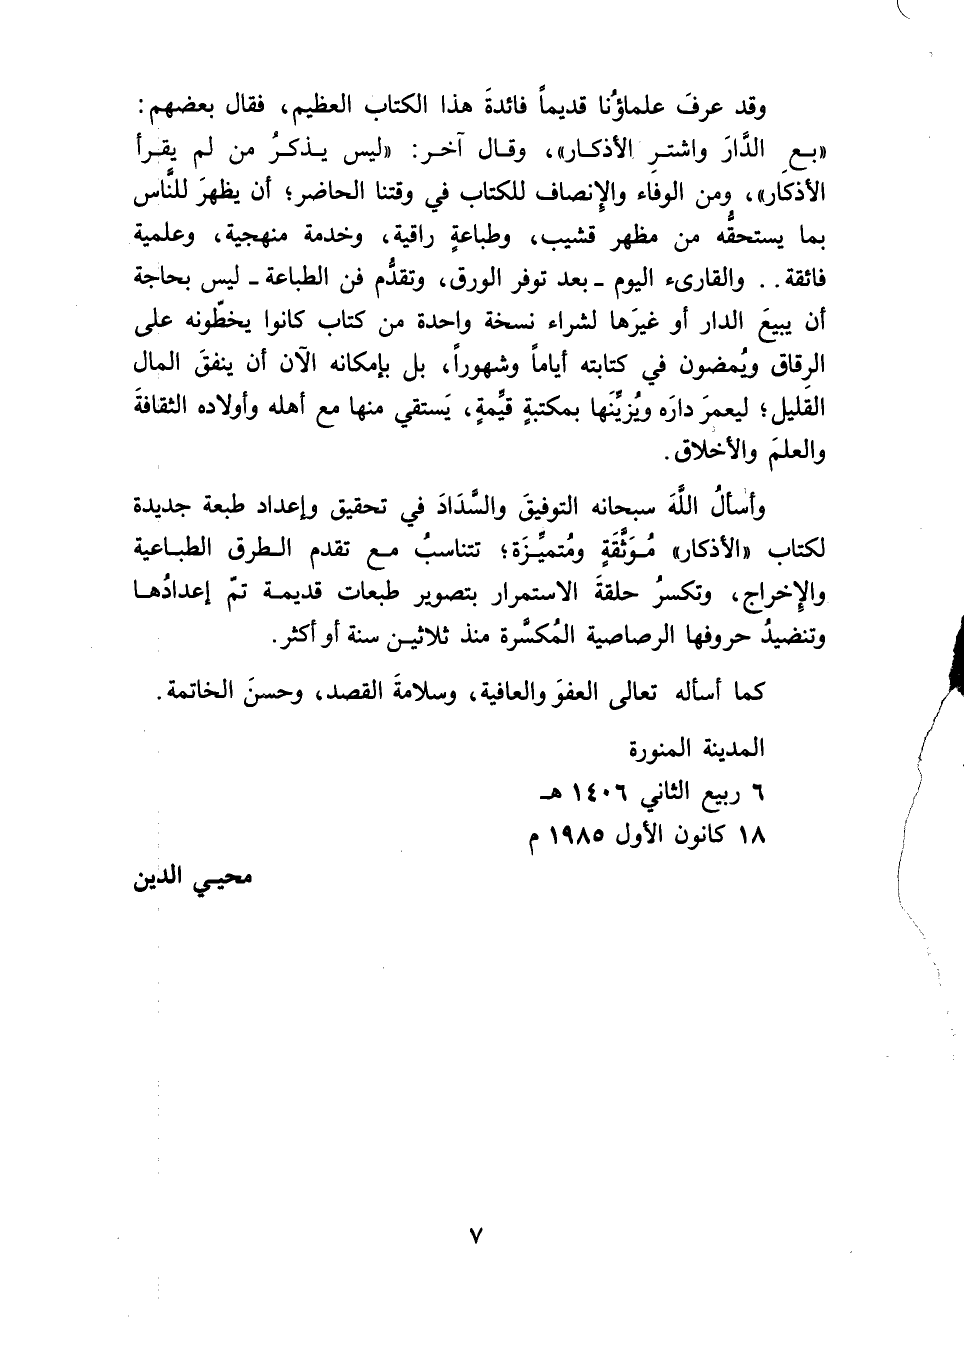 وقد عرفَ علماؤُنا قديماً فائدةَ هذا الكتاب العظيم، فقال بعضهم:
«بعِ الدَّارَ واشترِ الأذكار»، وقال آخر: «ليس يذكرُ من لم يقرأ
الأذكار»، ومن الوفاء والإنصاف للكتاب في وقتنا الحاضر؛ أن يظهرَ للنَّاس
بما يستحقُّه من مظهر قشيب، وطباعةٍ راقية، وخدمة منهجية، وعلمية
فائقة.. والقارىء اليوم ـ بعد توفر الورق، وتقدُّم فن الطباعة ـ ليس بحاجة
أن يبيعَ الدار أو غيرَها لشراء نسخة واحدة من كتاب كانوا يخطّونه على
الرقاق ويُمضون في كتابته أياماً وشهوراً، بل بإمكانه الآن أن ينفقَ المال
القليل؛ ليعمرَ دارَه ويُزيِّنَها بمكتبةٍ قيِّمةٍ، يَستقي منها مع أهله وأولاده الثقافةَ
والعلمَ والأخلاق.
وأسألُ اللَّهَ سبحانه التوفيقَ والسَّدَادَ في تحقيق وإعداد طبعة جديدة
لكتاب «الأذكار» مُوَثَّقَةٍ ومُتميِّزَة؛ تتناسبُ مع تقدم الطرق الطباعية
والإخراج، وتكسرُ حلقةَ الاستمرار بتصوير طبعات قديمة تمّ إعدادُها
وتنضيدُ حروفها الرصاصية المُكسَّرة منذ ثلاثين سنة أو أكثر.
كما أسأله تعالى العفوَ والعافية، وسلامةَ القصد، وحسنَ الخاتمة.
المدينة المنورة
٦ ربيع الثاني ١٤٠٦ هـ
١٨ كانون الأول ١٩٨٥ م
محيي الدين
٧